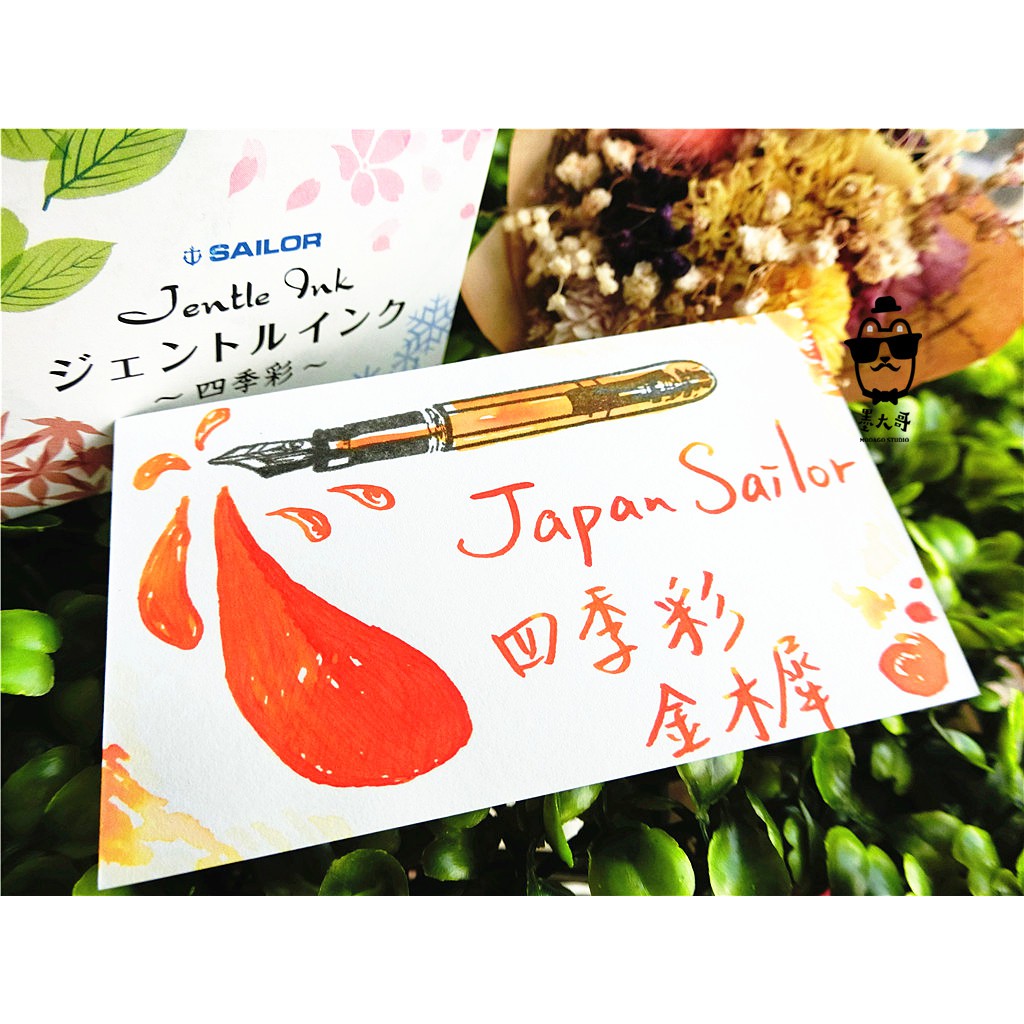 SAILOR
Jentle Ink
ジェントルインク
～四季彩～
墨大哥
Japan Sailor
四季彩
金木犀